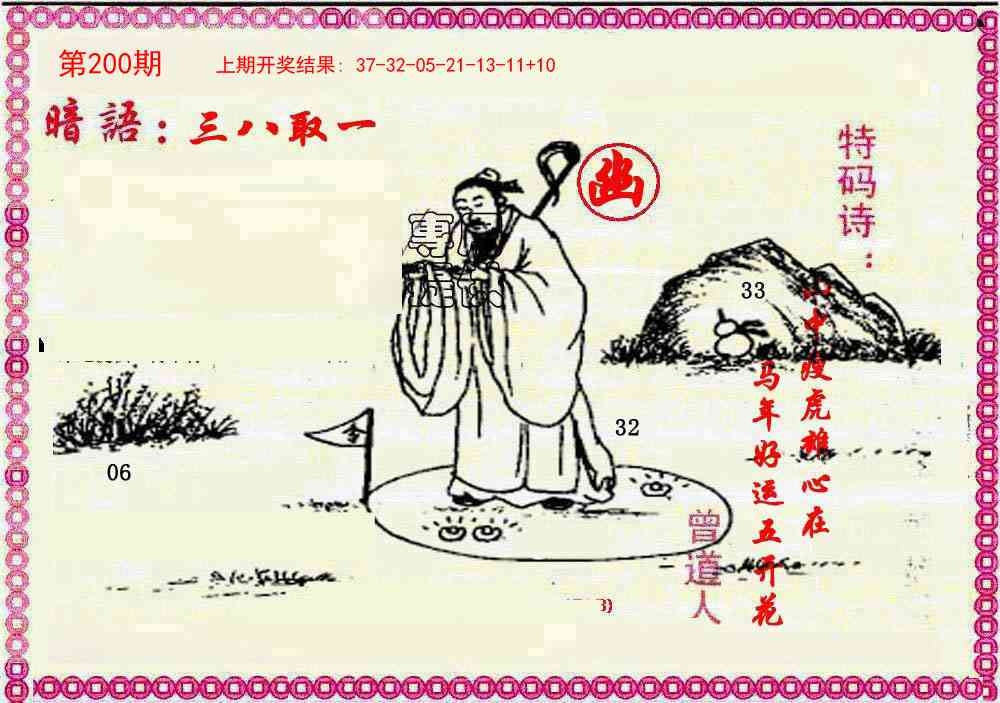 第200期
上期开奖结果: 37-32-05-21-13-11+10
暗語:三八取一
幽
特码诗:
山中瘦虎雄心在
马年好运五开花
33
32
06
令
曾道人